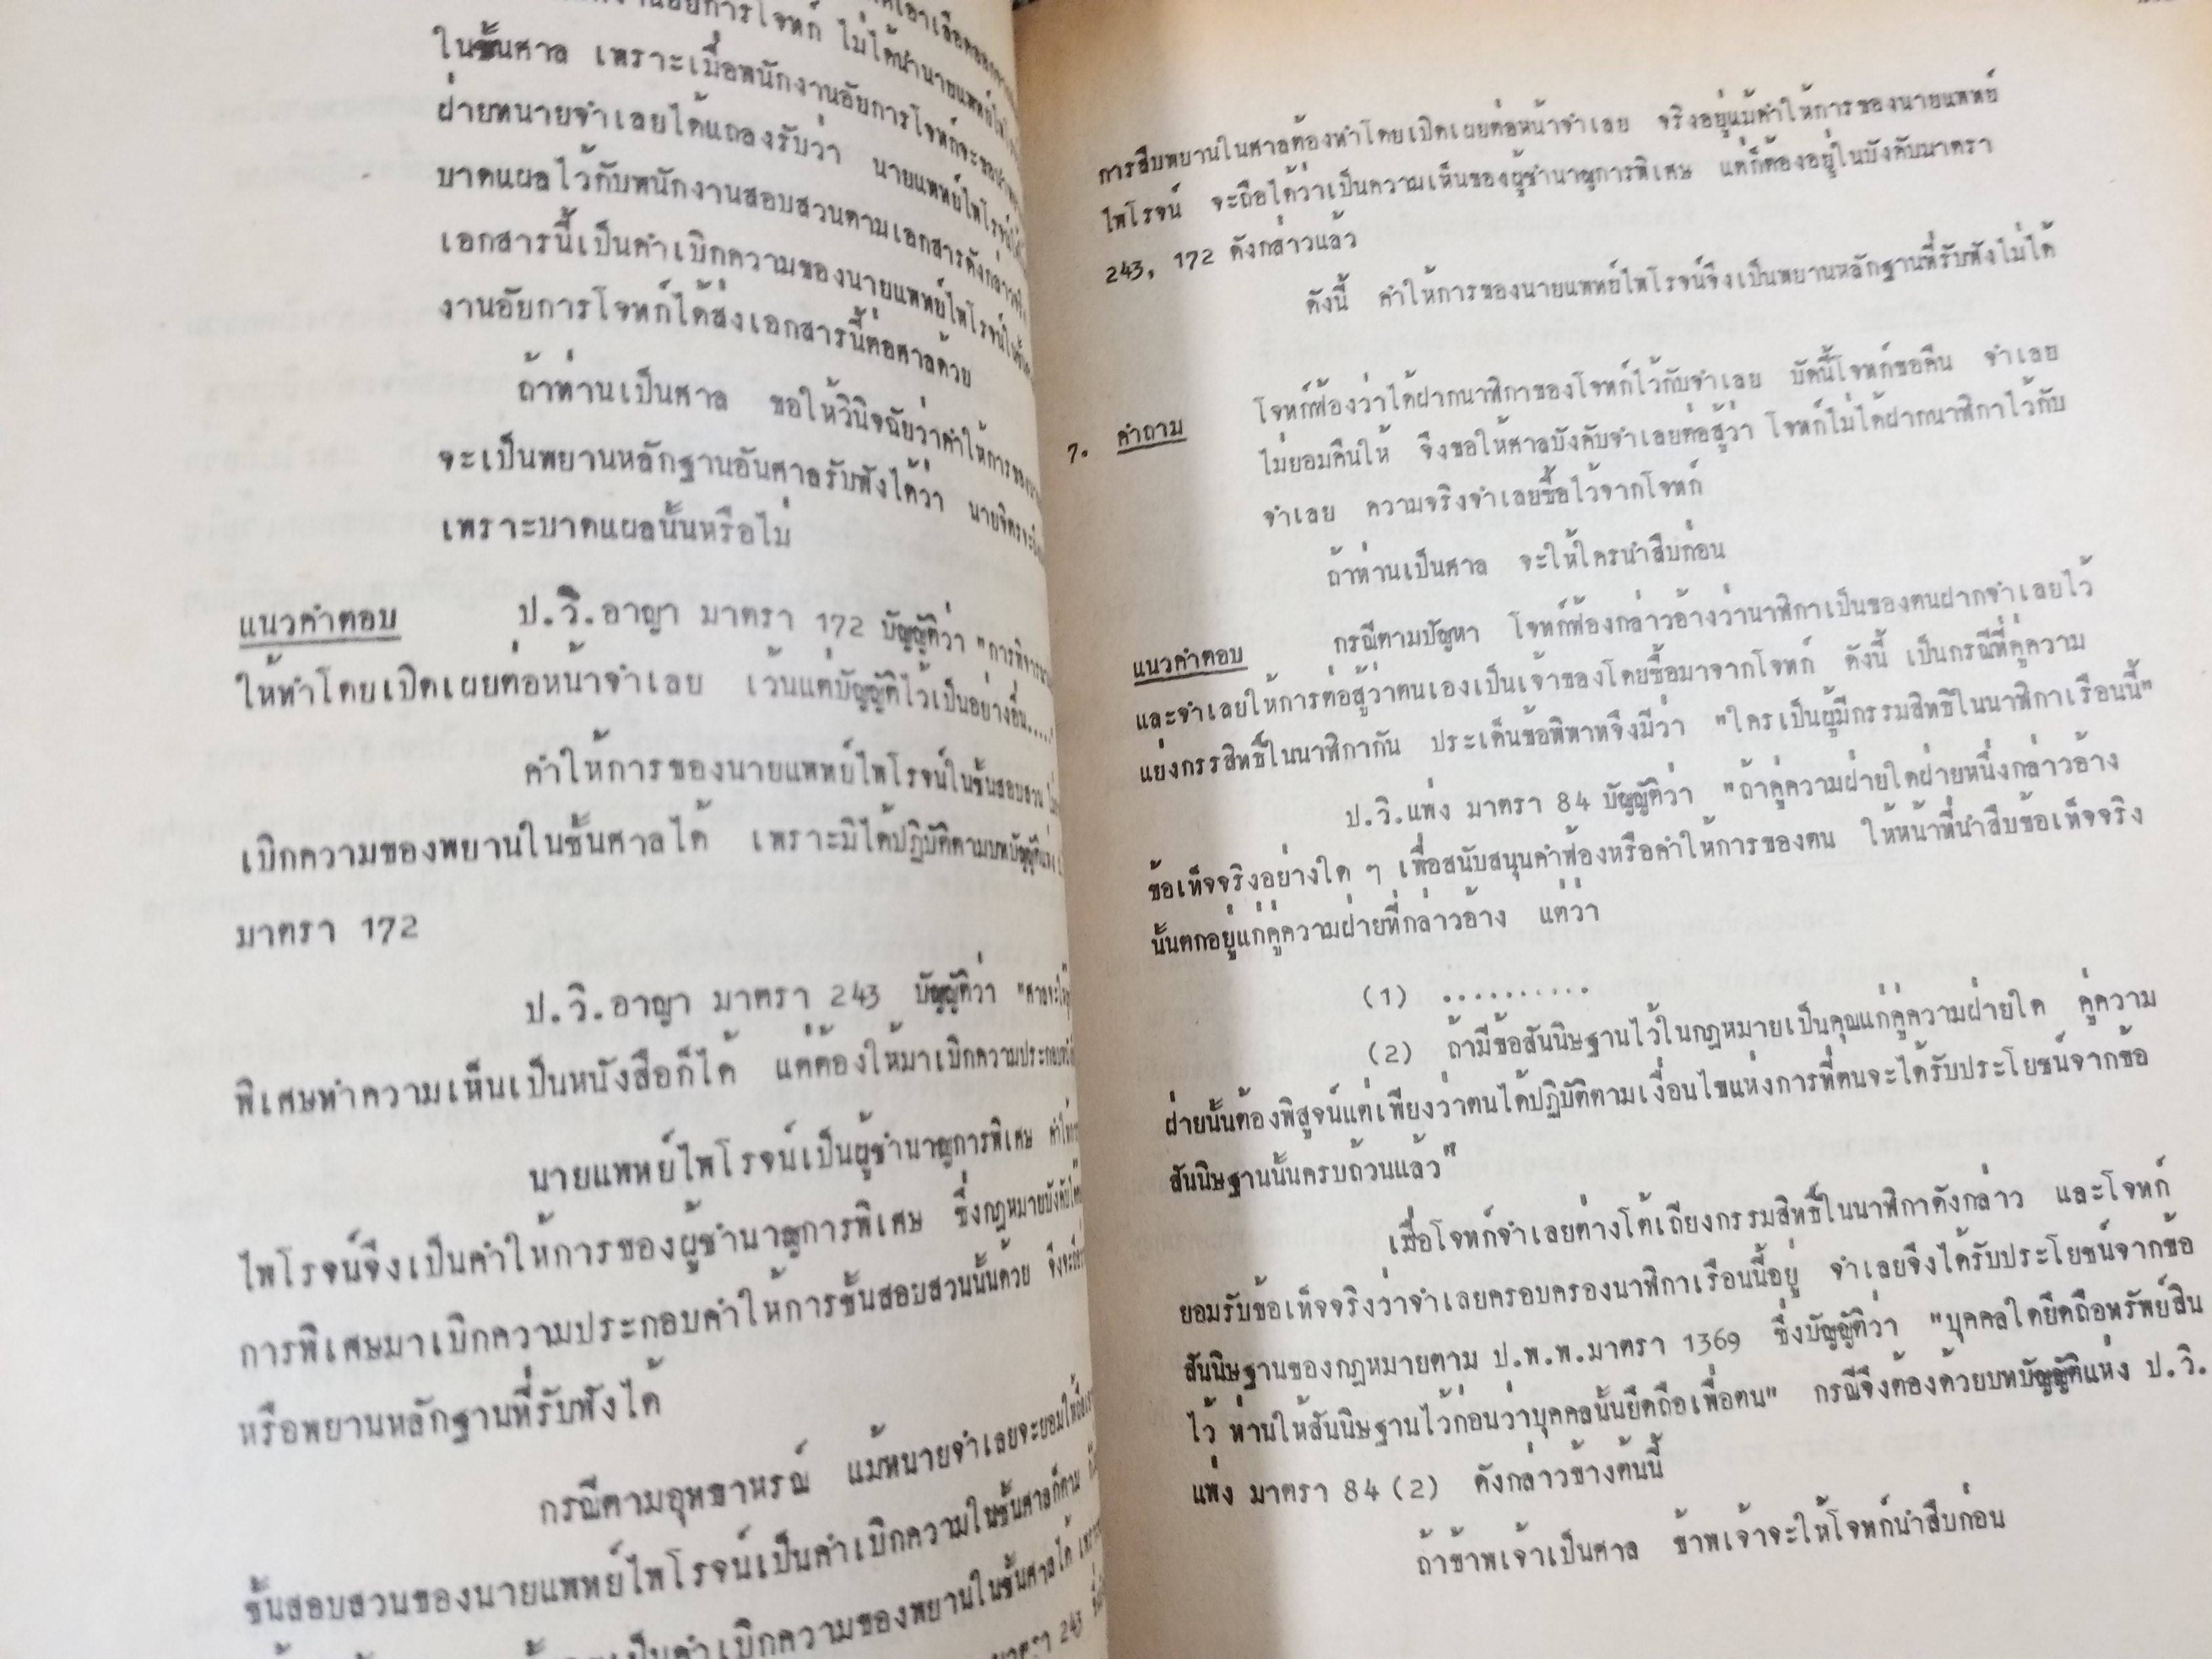 งานอัยการโจทก์ ไม่ได้นำนายแพทย์
ในชั้นศาล เพราะเมื่อพนักงานอัยการโจทก์จะขอนำ
ฝ่ายทนายจำเลยได้แถลงรับว่า นายแพทย์ไพโรจน์ได้
บาดแผลไว้กับพนักงานสอบสวนตามเอกสารดังกล่าวจริง
เอกสารนี้เป็นคำเบิกความของนายแพทย์ไพโรจน์
งานอัยการโจทก์ได้ส่งเอกสารนี้ต่อศาลด้วย
ถ้าท่านเป็นศาล ขอให้วินิจฉัยว่าคำให้การของ
จะเป็นพยานหลักฐานอันศาลรับฟังได้ว่า
เพราะบาดแผลนั้นหรือไม่
แนวคำตอบ ป.วิ.อาญา มาตรา 172 บัญญัติว่า "การพิจารณา
ให้ทำโดยเปิดเผยต่อหน้าจำเลย เว้นแต่บัญญัติไว้เป็นอย่างอื่น....."
คำให้การของนายแพทย์ไพโรจน์ในชั้นสอบสวน
เบิกความของพยานในชั้นศาลได้ เพราะมิได้ปฏิบัติตามบทบัญญัติแห่ง
มาตรา 172
ป.วิ.อาญา มาตรา 243 บัญญัติว่า
พิเศษทำความเห็นเป็นหนังสือก็ได้ แต่ต้องให้มาเบิกความประกอบ
นายแพทย์ไพโรจน์เป็นผู้ชำนาญการพิเศษ
ไพโรจน์จึงเป็นคำให้การของผู้ชำนาญการพิเศษ ซึ่งกฎหมายบังคับ
การพิเศษมาเบิกความประกอบคำให้การชั้นสอบสวนนั้นด้วย
หรือพยานหลักฐานที่รับฟังได้
กรณีตามอุทธาหรณ์ แม้ทนายจำเลยจะยอมให้
ชั้นสอบสวนของนายแพทย์ไพโรจน์เป็นคำเบิกความในชั้นศาลก็ตาม
เป็นคำเบิกความของพยานในชั้นศาลได้
243
การสืบพยานในศาลต้องทำโดยเปิดเผยต่อหน้าจำเลย จริงอยู่แม้คำให้การของนายแพทย์
ไพโรจน์ จะถือได้ว่าเป็นความเห็นของผู้ชำนาญการพิเศษ แต่ก็ต้องอยู่ในบังคับมาตรา
243, 172 ดังกล่าวแล้ว
ดังนี้ คำให้การของนายแพทย์ไพโรจน์จึงเป็นพยานหลักฐานที่รับฟังไม่ได้
7. คำถาม โจทก์ฟ้องว่าได้ฝากนาฬิกาของโจทก์ไว้กับจำเลย บัดนี้โจทก์ขอคืน จำเลย
ไม่ยอมคืนให้ จึงขอให้ศาลบังคับจำเลยต่อสู้ว่า โจทก์ไม่ได้ฝากนาฬิกาไว้กับ
จำเลย ความจริงจำเลยซื้อไว้จากโจทก์
ถ้าท่านเป็นศาล จะให้ใครนำสืบก่อน
แนวคำตอบ กรณีตามปัญหา โจทก์ฟ้องกล่าวอ้างว่านาฬิกาเป็นของตนฝากจำเลยไว้
และจำเลยให้การต่อสู้ว่าตนเองเป็นเจ้าของโดยซื้อมาจากโจทก์ ดังนี้ เป็นกรณีที่คู่ความ
แย่งกรรสิทธิ์ในนาฬิกากัน ประเด็นข้อพิพาทจึงมีว่า "ใครเป็นผู้มีกรรมสิทธิในนาฬิกาเรือนนี้"
ป.วิ.แพ่ง มาตรา 84 บัญญัติว่า "ถ้าคู่ความฝ่ายใดฝ่ายหนึ่งกล่าวอ้าง
ข้อเท็จจริงอย่างใด ๆ เพื่อสนับสนุนคำฟ้องหรือคำให้การของตน ให้หน้าที่นำสืบข้อเท็จจริง
นั้นตกอยู่แก่คู่ความฝ่ายที่กล่าวอ้าง แต่ว่า
(1) ..........
(2) ถ้ามีข้อสันนิษฐานไว้ในกฎหมายเป็นคุณแก่คู่ความฝ่ายใด คู่ความ
ฝ่ายนั้นต้องพิสูจน์แต่เพียงว่าตนได้ปฏิบัติตามเงื่อนไขแห่งการที่ตนจะได้รับประโยชน์จากข้อ
สันนิษฐานนั้นครบถ้วนแล้ว"
เมื่อโจทก์จำเลยต่างโต้เถียงกรรมสิทธิ์ในนาฬิกาดังกล่าว และโจทก์
ยอมรับข้อเท็จจริงว่าจำเลยครอบครองนาฬิกาเรือนนี้อยู่ จำเลยจึงได้รับประโยชน์จากข้อ
สันนิษฐานของกฎหมายตาม ป.พ.พ.มาตรา 1369 ซึ่งบัญญัติว่า "บุคคลใดยึดถือทรัพย์สิน
ไว้ ท่านให้สันนิษฐานไว้ก่อนว่าบุคคลนั้นยึดถือเพื่อตน" กรณีจึงต้องด้วยบทบัญญัติแห่ง ป.วิ.
แพ่ง มาตรา 84 (2) ดังกล่าวข้างต้นนี้
ถ้าข้าพเจ้าเป็นศาล ข้าพเจ้าจะให้โจทก์นำสืบก่อน